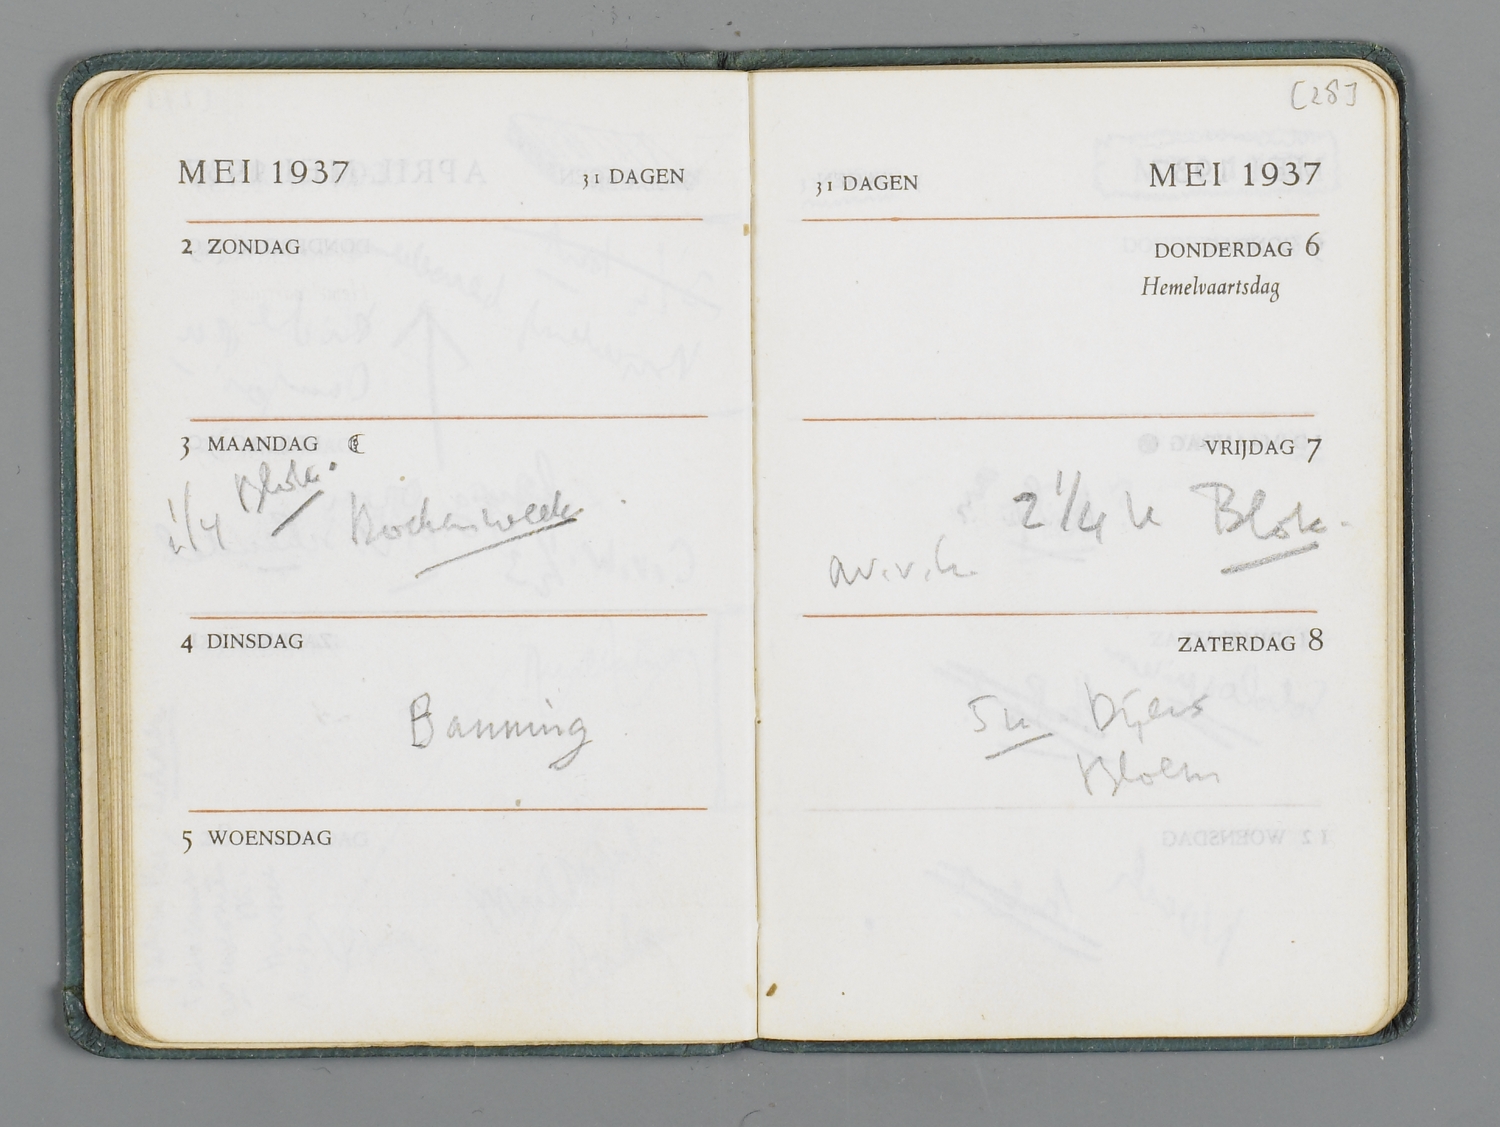 MEI 1937 31 DAGEN
2 ZONDAG
3 MAANDAG
Blok.
4 DINSDAG
Banning
5 WOENSDAG
[28]
31 DAGEN MEI 1937
DONDERDAG 6
Hemelvaartsdag
VRIJDAG 7
2 1/4 u Blok.
ZATERDAG 8
5 u
Bloem